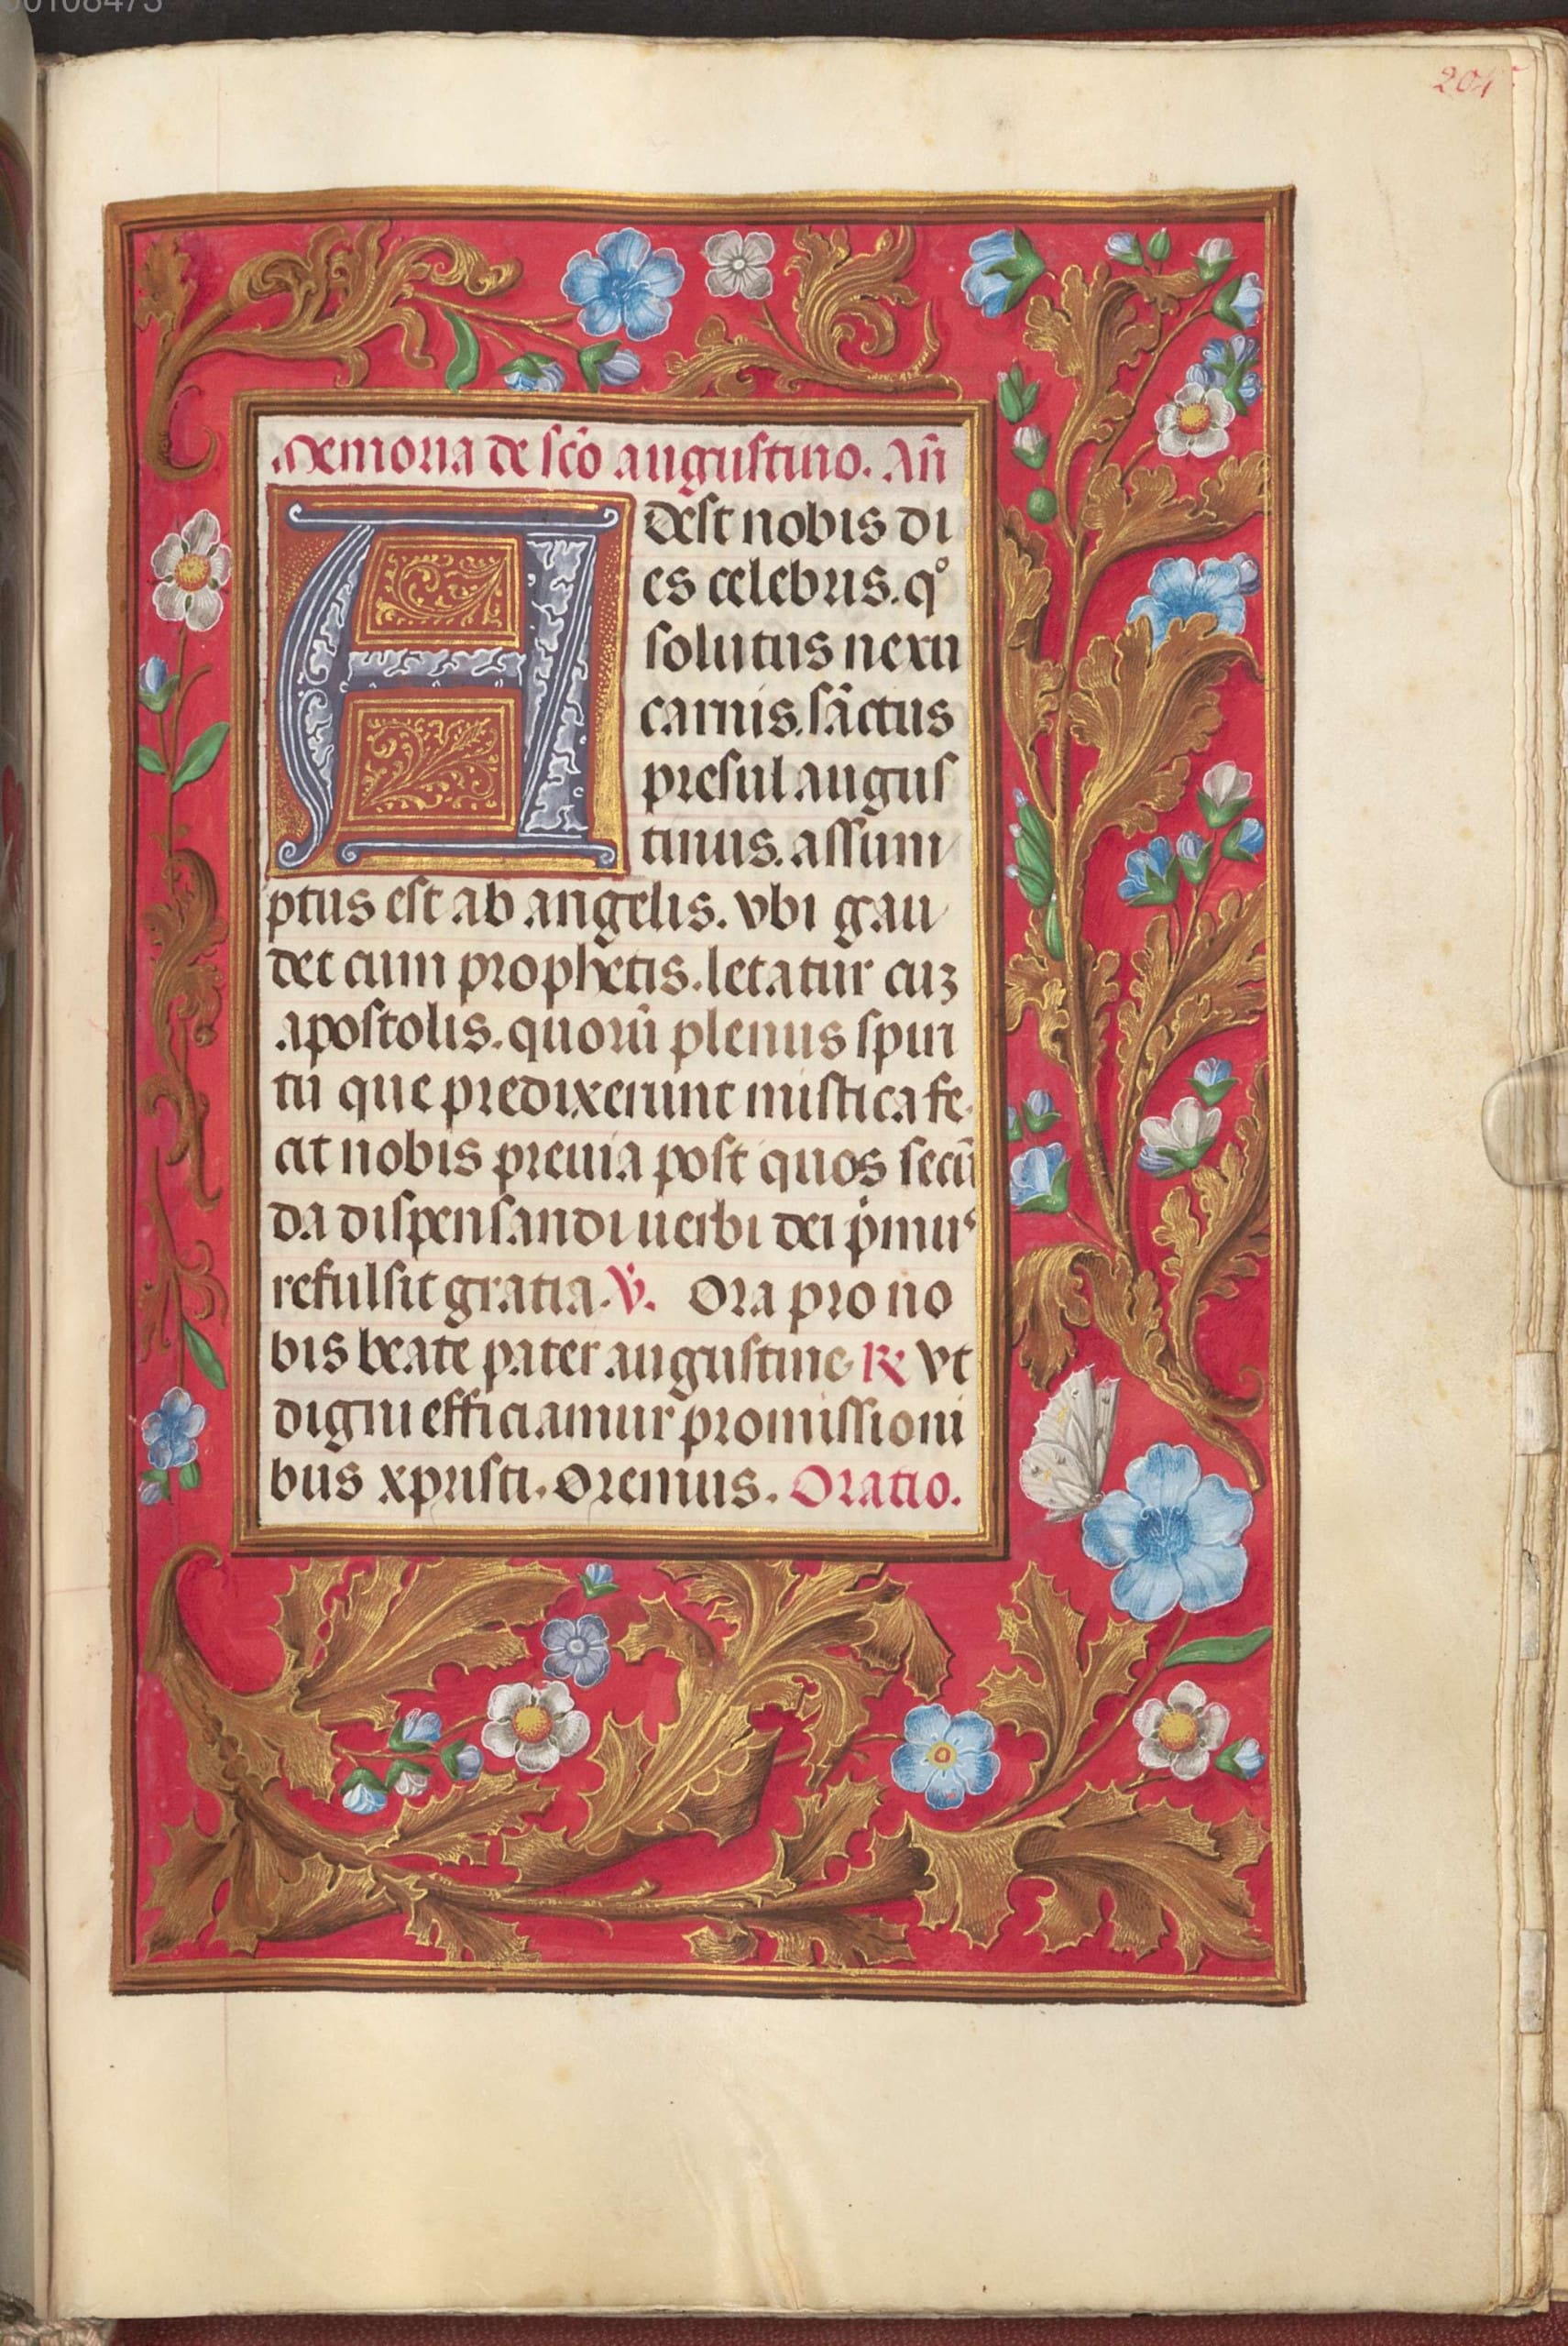 00108473
204
Memoria de sc̃o augustino. An̄
Adest nobis di
es celebris. qº
solutus nexu
carnis. sāctus
presul augus
tinus. assum
ptus est ab angelis. vbi gau
det cum prophetis. letatur cuʒ
apostolis. quorū plenus spiri
tū que predixerunt mistica fe
cit nobis preuia post quos secū
da dispensandi uerbi dei pͥmus
refulsit gratia. V̇. Ora pro no
bis beate pater augustine. R Vt
digni efficiamur promissioni
bus xpristi. Oremus. Oratio.